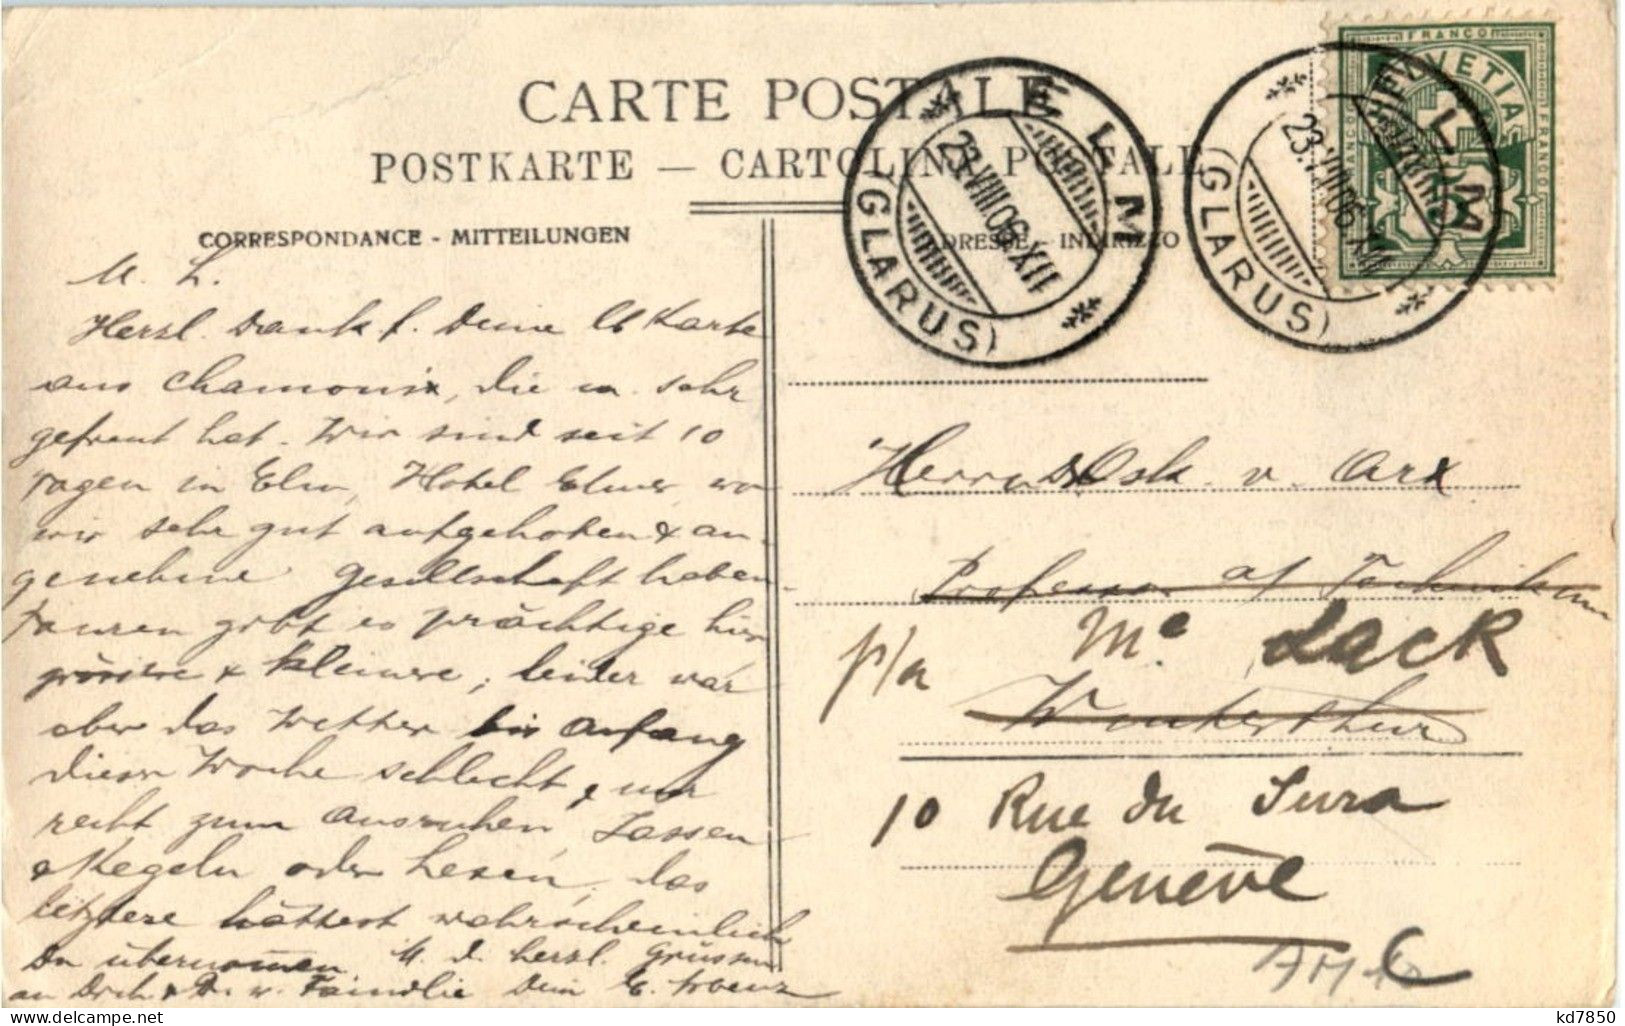 CARTE POSTALE
POSTKARTE — CARTOLINA POSTALE
CORRESPONDANCE - MITTEILUNGEN
ADRESSE - INDIRIZZO
ELM
(GLARUS)
23.VIII.06.XII
ELM
(GLARUS)
23.VIII.06.XII
FRANCO
HELVETIA
FRANCO
FRANCO
M. L.
Herzl. Dank f. Deine lb Karte
aus Chamonix, die m. sehr
gefreut hat. Wir sind seit 10
Tagen in Elm, Hotel Elmer wo
wir sehr gut aufgehoben & an-
genehme Gesellschaft haben.
Touren gibt es prächtige hier
grössere & kleinere, leider war
aber das Wetter bis anfang
dieser Woche schlecht, & nur
recht zum Ausruhen, Jassen
& Kegeln oder Lesen, das
letztere hättest wahrscheinlich
Du übernommen M. d. herzl. Grüssen
an Dich & w. Familie Dein E.
Herrn Osk. v. Arx
Professor a/ Technikum
p/a Me Lack
Winterthur
10 Rue du Jura
Genève
kd7850